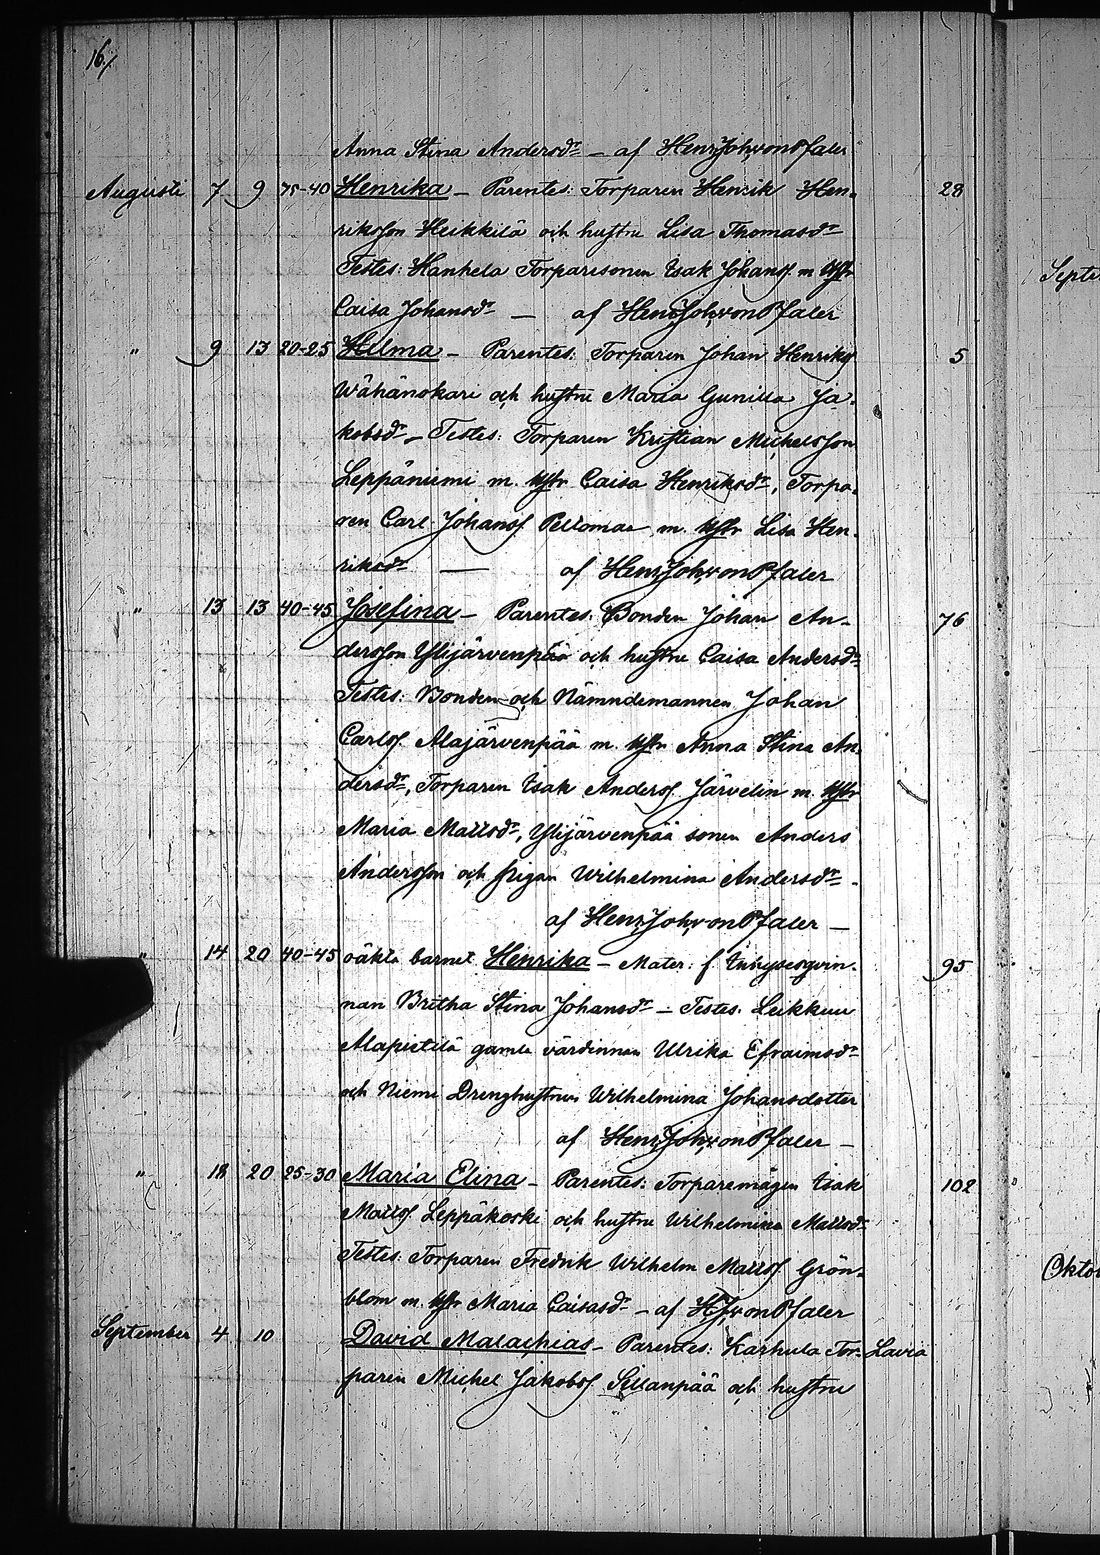 16/
Anna Stina Andersdr – af HenrJohvonPfaler
Augusti 7 9 75-40 Henrika – Parentes: Torparen Henrik Hen- 28
riksson Heikkilä och hustru Lisa Thomasdr
Testes: Hanhela Torparesonen Isak Johanss. m. hstr
Caisa Johansdr – af HenrJohvonPfaler
" 9 13 20-25 Hilma – Parentes: Torparen Johan Henrikss 5
Wähänokari och hustru Maria Gunilla Ja-
kobsdr – Testes: Torparen Kristian Michelsson
Leppäniemi m. hstr Caisa Henriksdr, Torpa-
ren Carl Johanss. Peltomaa m. hstr Lisa Hen-
riksdr — af HenrJohvonPfaler
" 13 13 40-45 Josefina – Parentes: Bonden Johan An- 76
dersson Ylijärvenpää och hustru Caisa Andersdr
Testes: Bonden och Nämndemannen Johan
Carlss. Alajärvenpää m. hstr Anna Stina An-
dersdr, Torparen Isak Anderss. Järvelin m. hstr
Maria Mattsdr, Ylijärvenpää sonen Anders
Andersson och pigan Wilhelmina Andersdr –
af HenrJohvonPfaler –
" 14 20 40-45 oäkta barnet Henrika – Mater: f. Inhysesqvin- 95
nan Britha Stina Johansdr – Testes: Leikkuu
Alapietilä gamla värdinnan Ulrika Efraimsdr
och Niemi Drenghustrun Wilhelmina Johansdotter
af HenrJohvonPfaler –
" 18 20 25-30 Maria Elina – Parentes: Torparemågen Isak 102
Mattss. Leppäkoski och hustru Wilhelmina Mattsdr
Testes: Torparen Fredrik Wilhelm Mattss Grön-
blom m. hstr Maria Caisasdr – af HJvonPfaler
September 4 10 David Malachias – Parentes: Karhula Tor- Lavia
paren Michel Jakobss. Sillanpää och hustru
Septe
Oktob